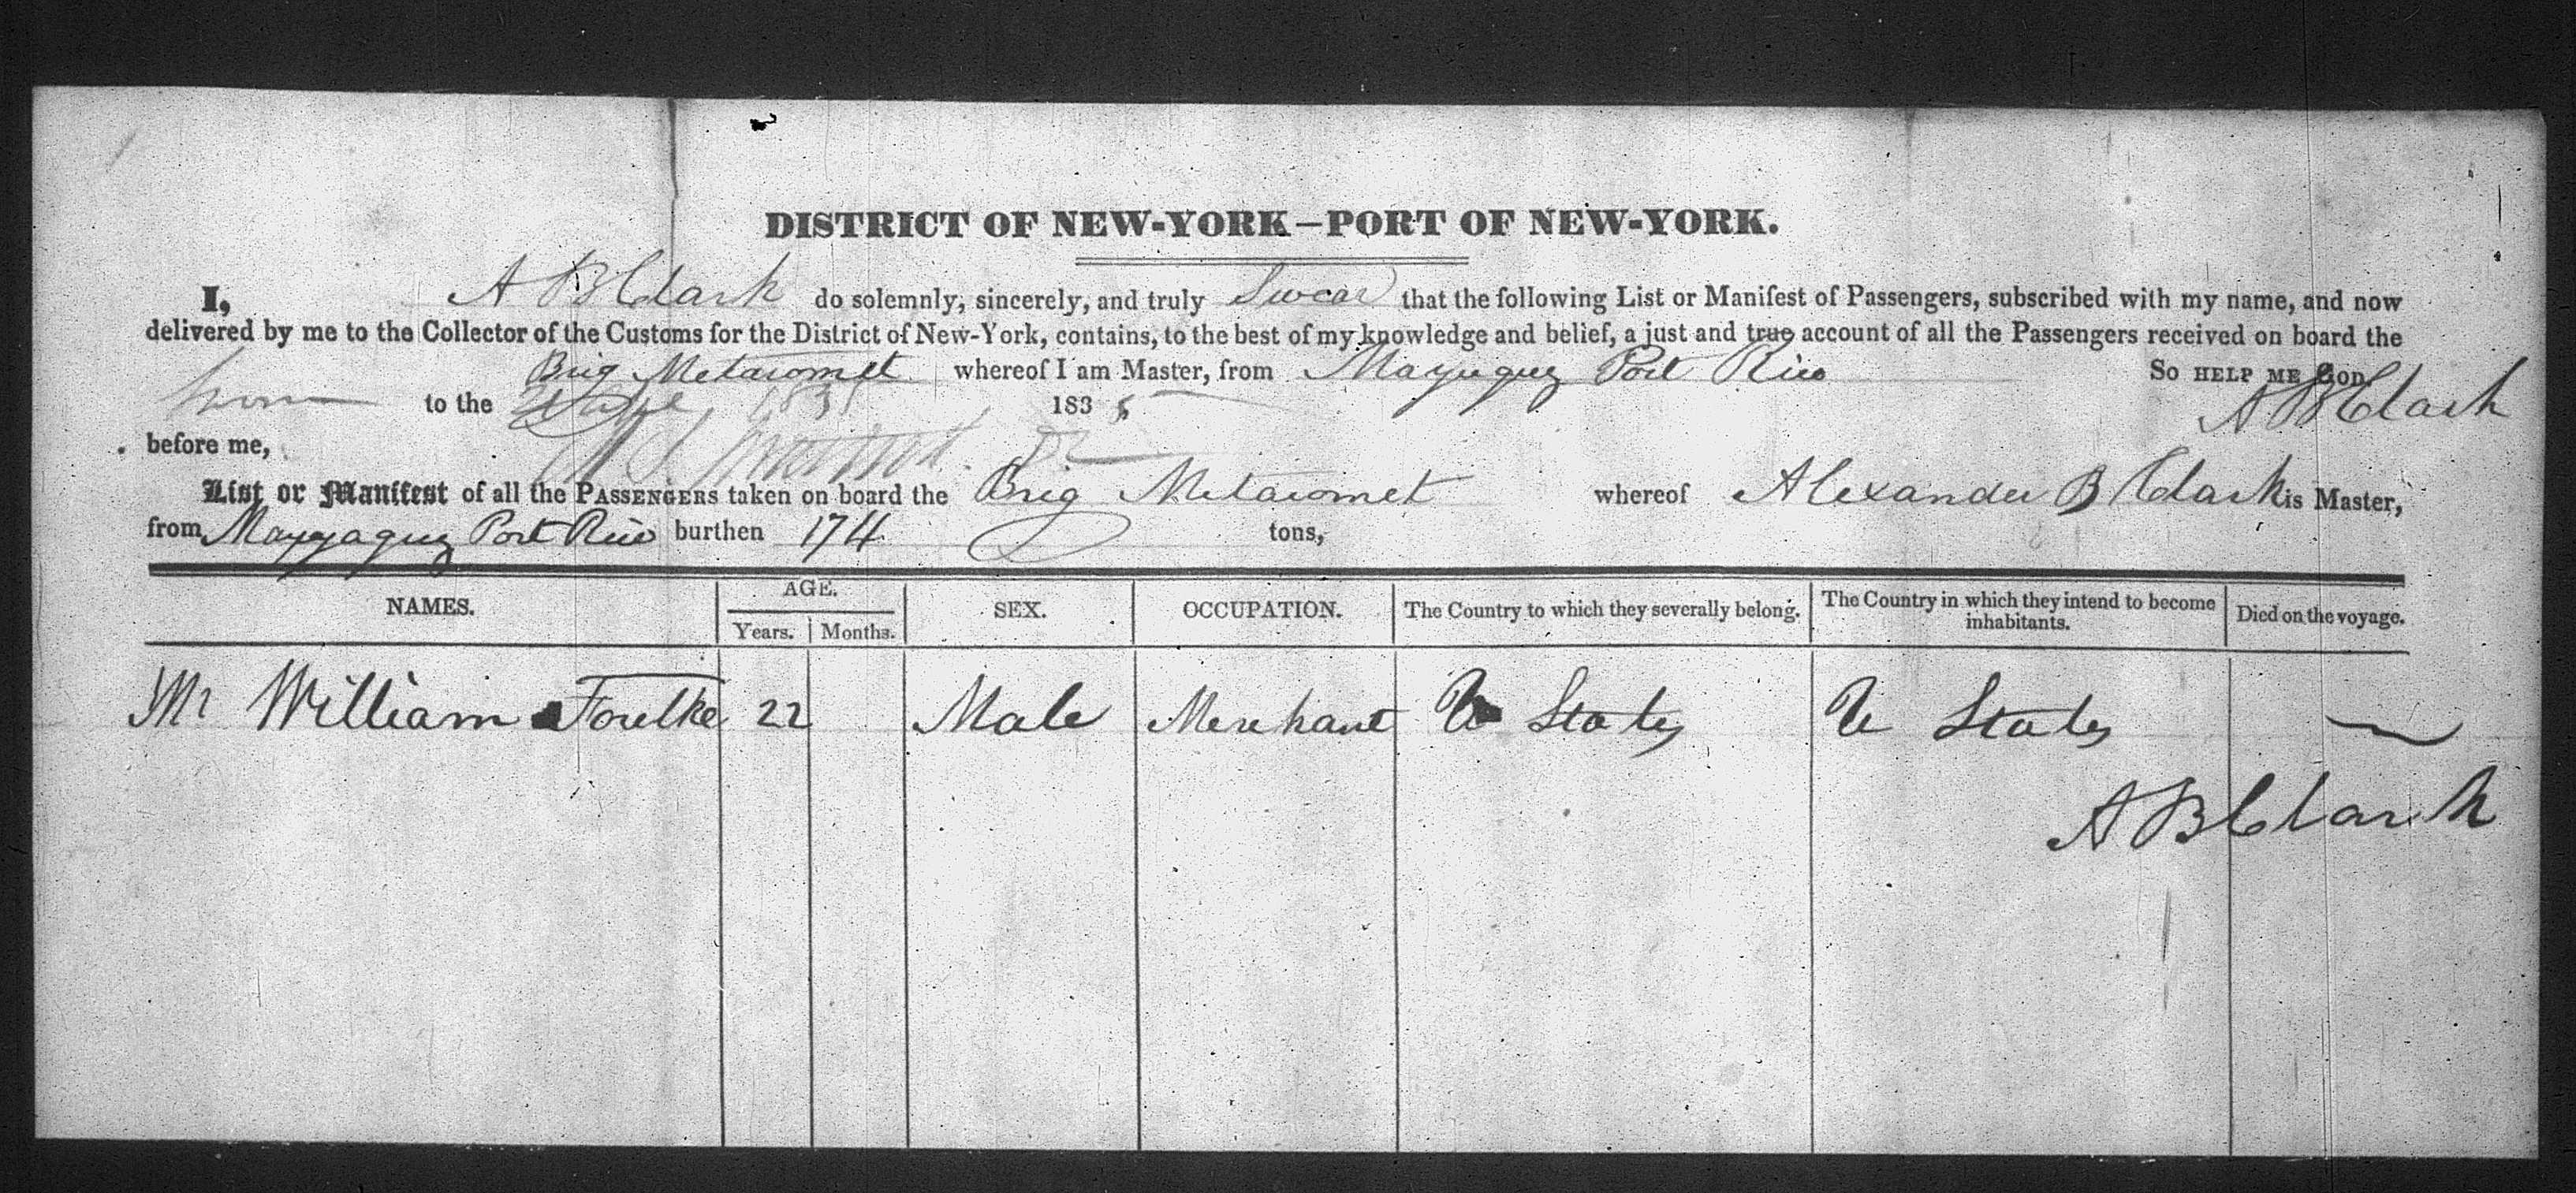 DISTRICT OF NEW-YORK—PORT OF NEW-YORK.
I, A B Clark do solemnly, sincerely, and truly Swear that the following List or Manifest of Passengers, subscribed with my name, and now
delivered by me to the Collector of the Customs for the District of New-York, contains, to the best of my knowledge and belief, a just and true account of all the Passengers received on board the
Brig Metacomet whereof I am Master, from Mayuguez Port Rico So HELP ME GOD.
Sworn to the 1835 A B Clark
before me,
List or Manifest of all the PASSENGERS taken on board the Brig Metacomet whereof Alexander B Clark is Master,
from Mayyaguez Port Rico burthen 174 tons,
NAMES. AGE. SEX. OCCUPATION. The Country to which they severally belong. The Country in which they intend to become inhabitants. Died on the voyage.
Years. Months.
Mr William Foulke 22 Male Merchant U States U States
A B Clark